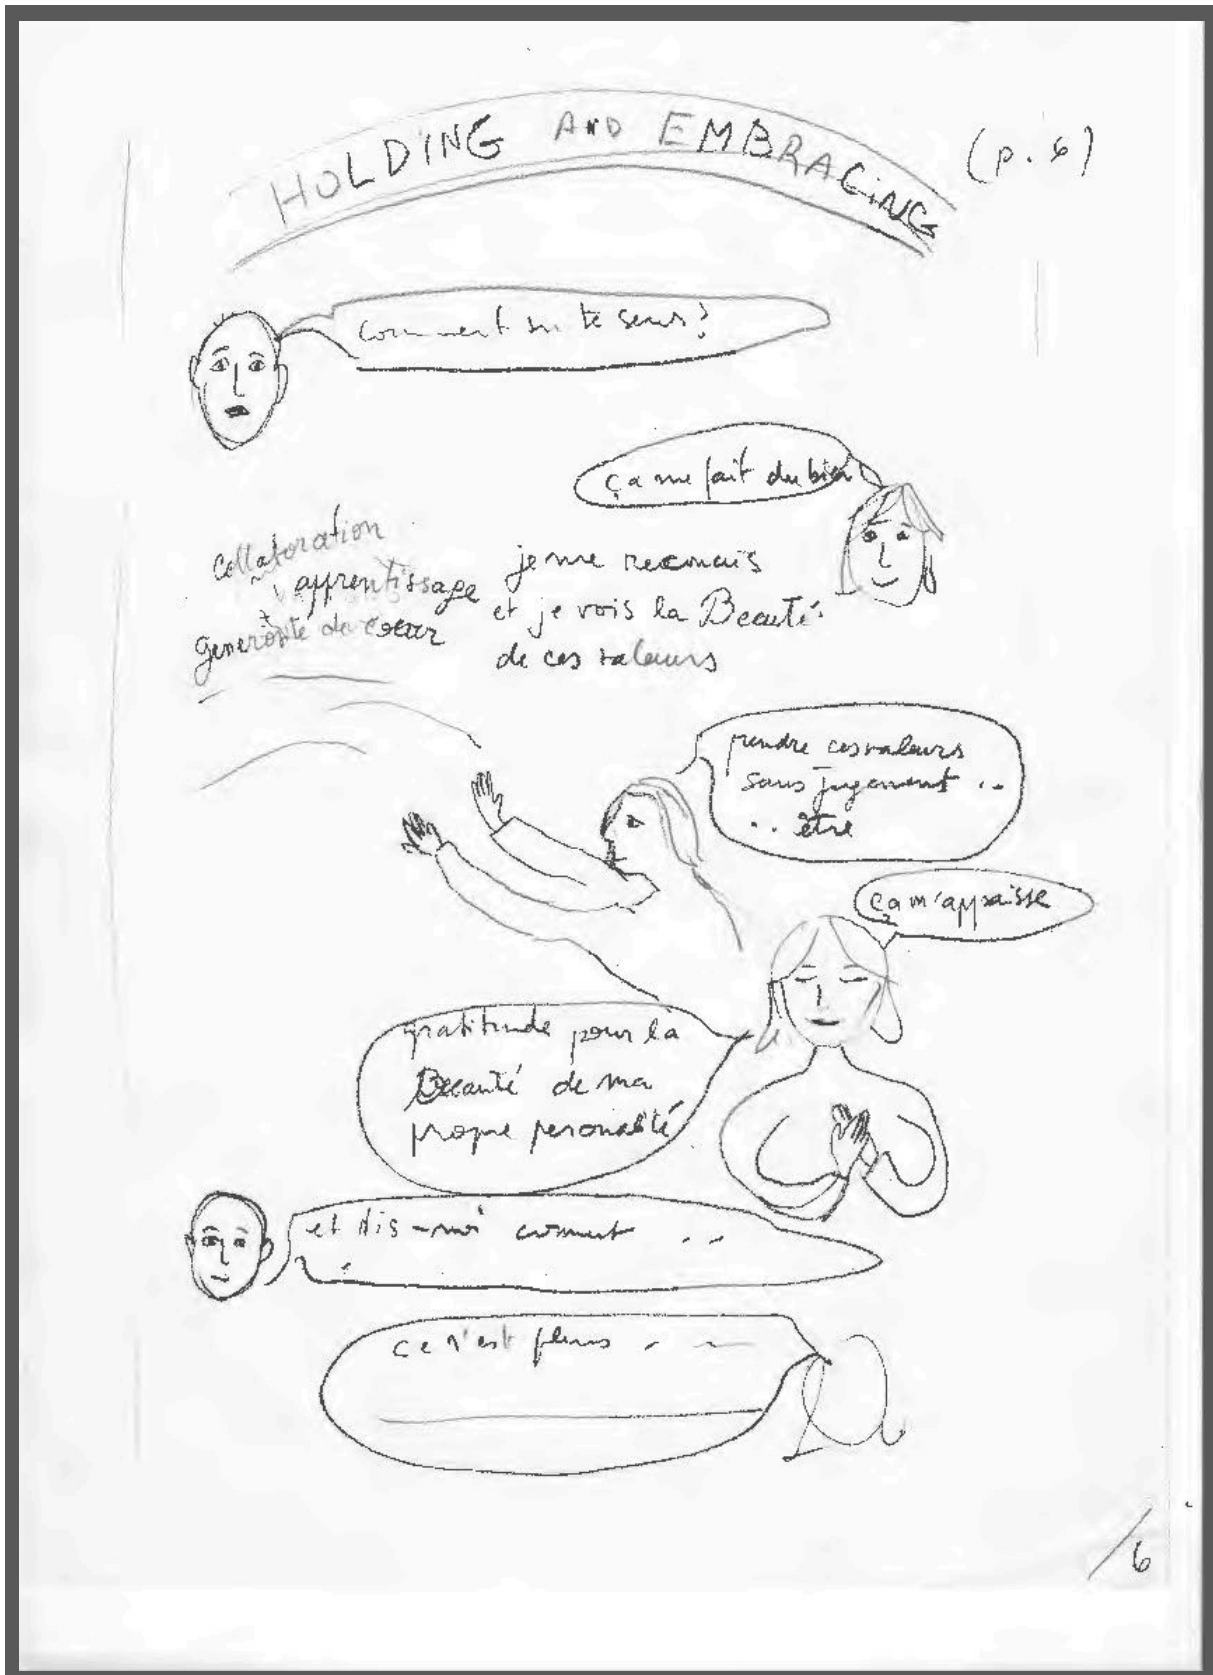 HOLDING AND EMBRACING
(p. 6)
comment tu te sens?
ça me fait du bien
collaboration
apprentissage
+
générosité de cœur
je me reconnais
et je vois la Beauté
de ces valeurs
prendre ces valeurs
sans jugement ..
.. être
ça m'appaisse
gratitude pour la
Beauté de ma
propre personalité
et dis-moi comment ..
ce n'est plus
/6